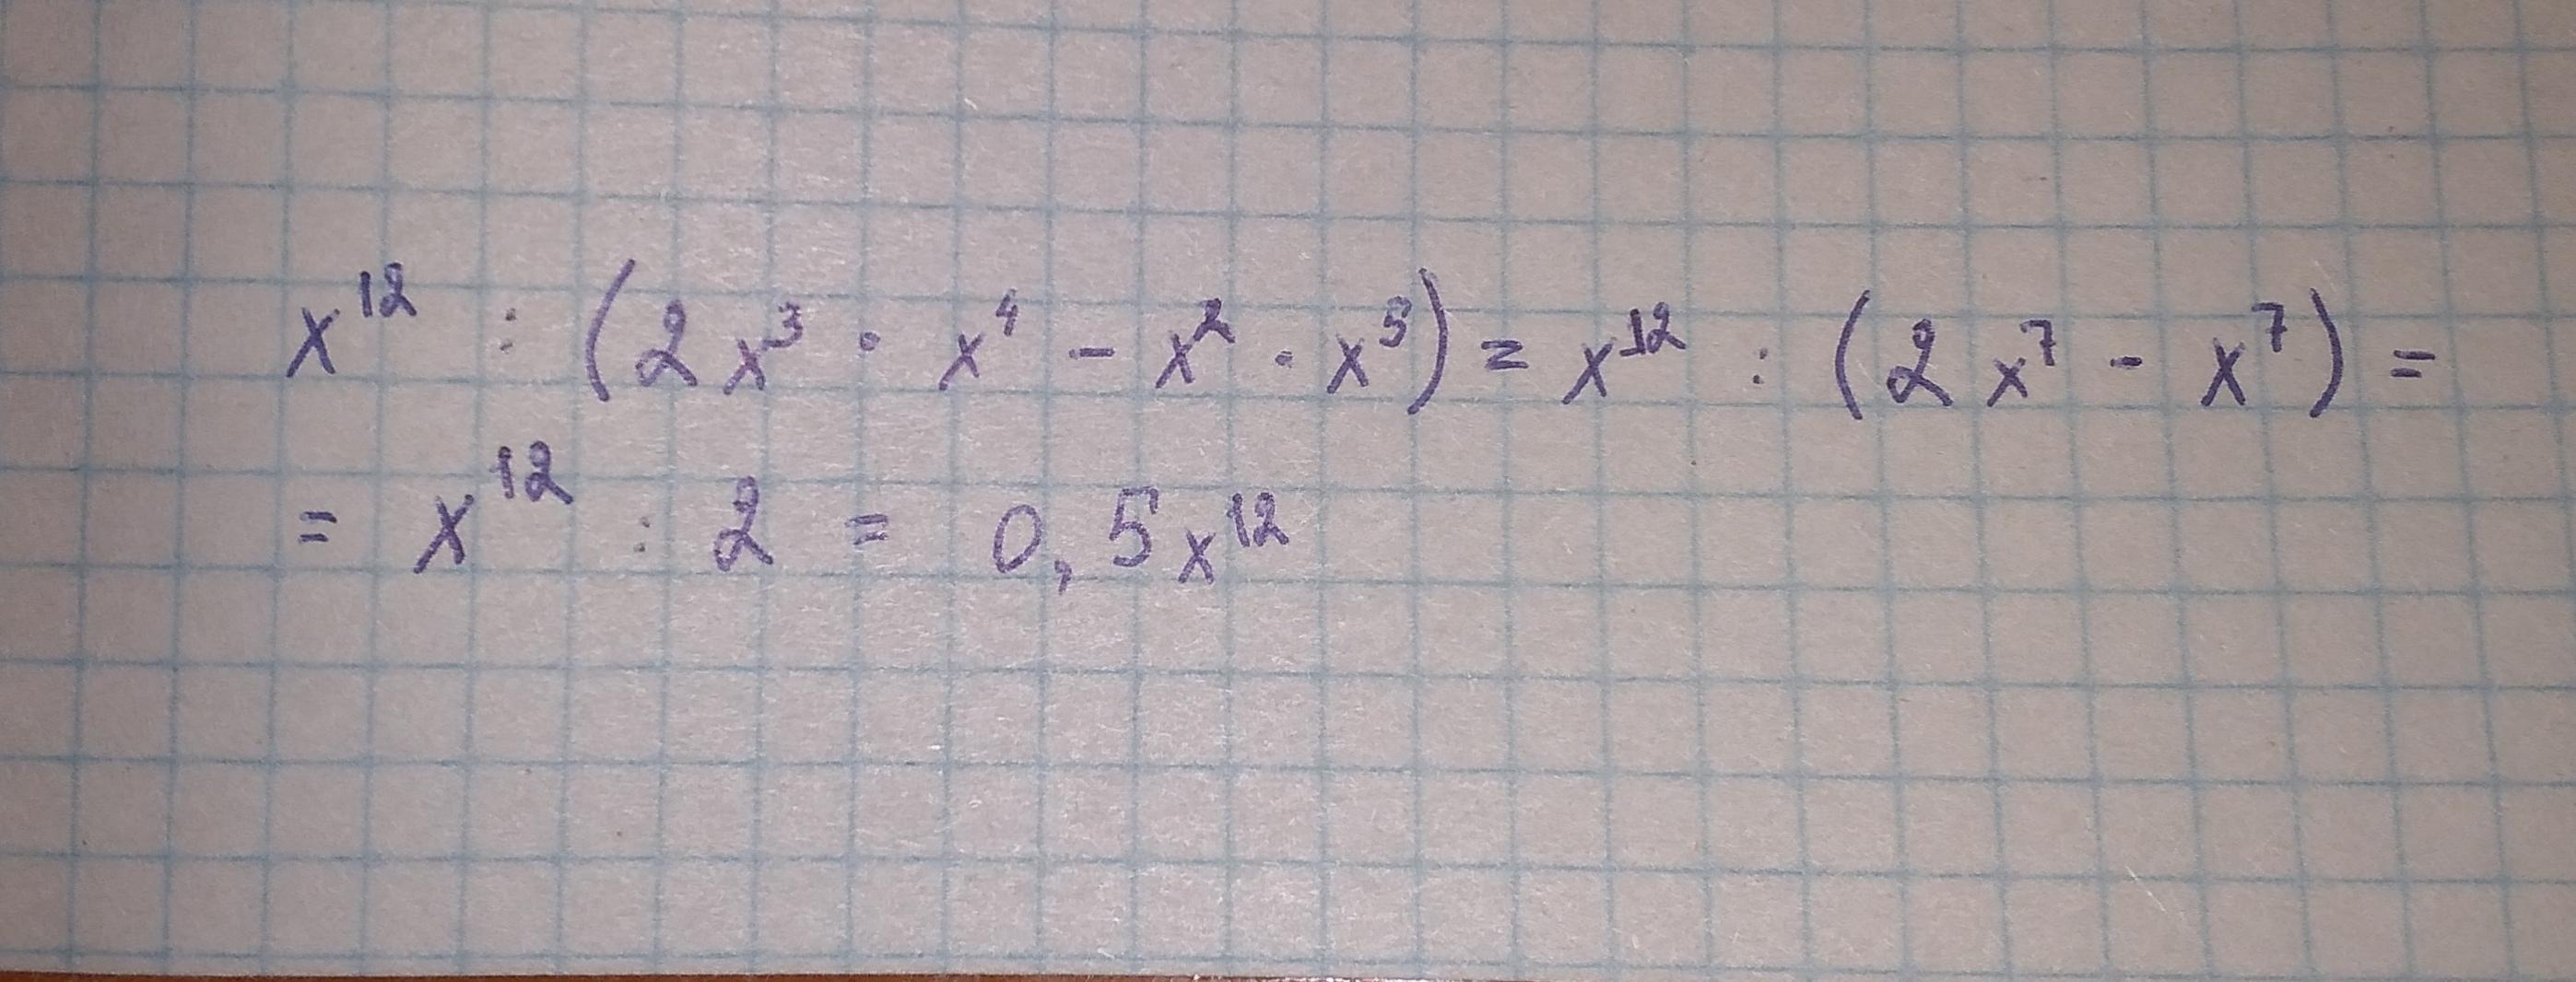 x¹² : (2x³ · x⁴ - x² · x⁵) = x¹² : (2x⁷ - x⁷) =
= x¹² : 2 = 0,5x¹²